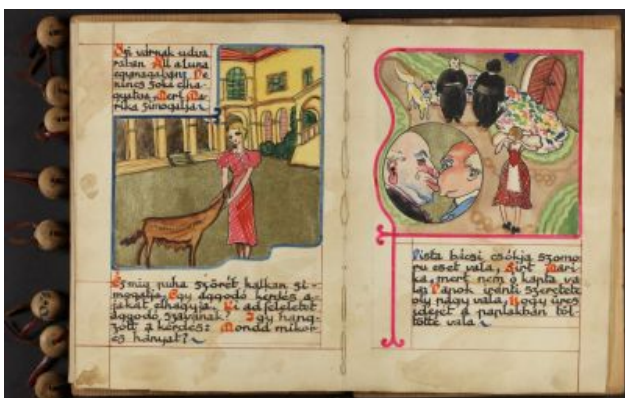 Ősi várnak udva
rában Áll a tuna
egymagában De
nincs soká elha-
gyatva Mert Ma-
rika simogatja
S míg puha szőrét halkan si-
mogatja, Egy aggódó kérdés a-
jakát elhagyja, Ki ad feleletet
aggódó szavának? Így hang-
zott a kérdés: Mondd mikor
és hányat?
Pista bácsi csókja szomo
rú eset vala, Sírt Mari
ka, mert nem ő kapta va
la Papok iránti szeretete
oly nagy vala, Hogy üres
idejét a paplakban töl-
tötte vala